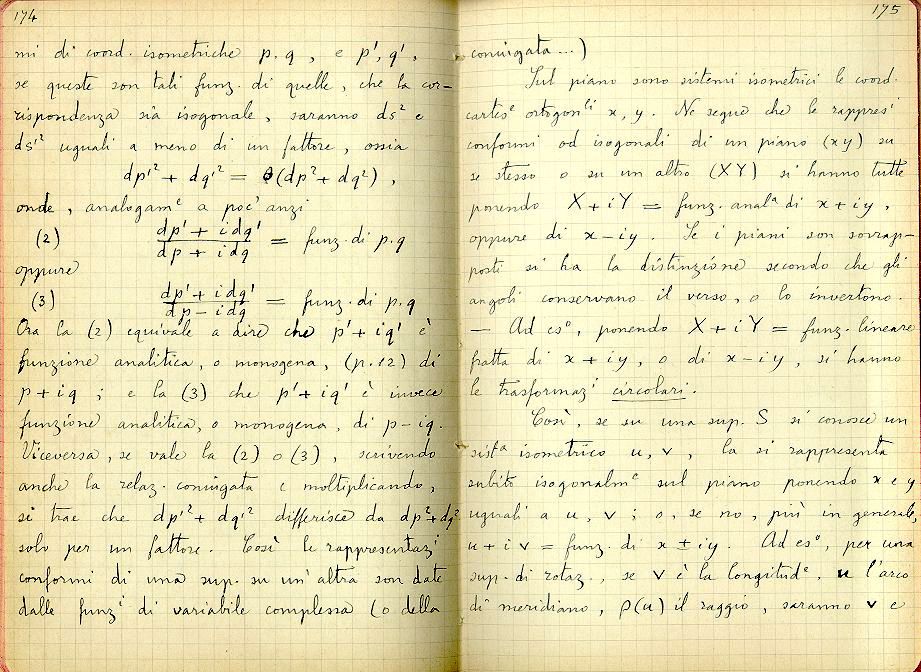 174
mi di coord. isometriche p.q , e p', q' ,
se queste son tali funz. di quelle, che la cor-
rispondenza sia isogonale, saranno ds² e
ds'² uguali a meno di un fattore, ossia
dp'² + dq'² = θ(dp² + dq²) ,
onde, analogamᵉ a poc' anzi
(2) dp' + i dq' / dp + i dq = funz. di p.q
oppure
(3) dp' + i dq' / dp − i dq = funz. di p.q
Ora la (2) equivale a dire che p' + iq' è
funzione analitica, o monogena, (p.12) di
p + iq ; e la (3) che p' + iq' è invece
funzione analitica, o monogena, di p − iq.
Viceversa, se vale la (2) o (3), scrivendo
anche la relaz. coniugata e moltiplicando,
si trae che dp'² + dq'² differisce da dp² + dq²
solo per un fattore. Così le rappresentazⁱ
conformi di una sup. su un' altra son date
dalle funzⁱ di variabile complessa (o della
175
coniugata ...)
Sul piano sono sistemi isometrici le coord.
cartesᵉ ortogonˡⁱ x, y. Ne segue che le rappresⁱ
conformi od isogonali di un piano (xy) su
se stesso o su un altro (XY) si hanno tutte
ponendo X + iY = funz. analᵃ di x + iy ,
oppure di x − iy. Se i piani son sovrap-
posti si ha la distinzione secondo che gli
angoli conservano il verso, o lo invertono.
— Ad esᵒ, ponendo X + iY = funz. lineare
fratta di x + iy, o di x − iy, si hanno
le trasformazⁱ circolari.
Così, se su una sup. S si conosce un
sistᵃ isometrico u, v , la si rappresenta
subito isogonalmᵉ sul piano ponendo x e y
uguali a u, v ; o, se no, più in generale,
u + iv = funz. di x ± iy. Ad esᵒ, per una
sup. di rotaz., se v è la longitudᵉ, u l'arco
di meridiano, ρ(u) il raggio, saranno v e